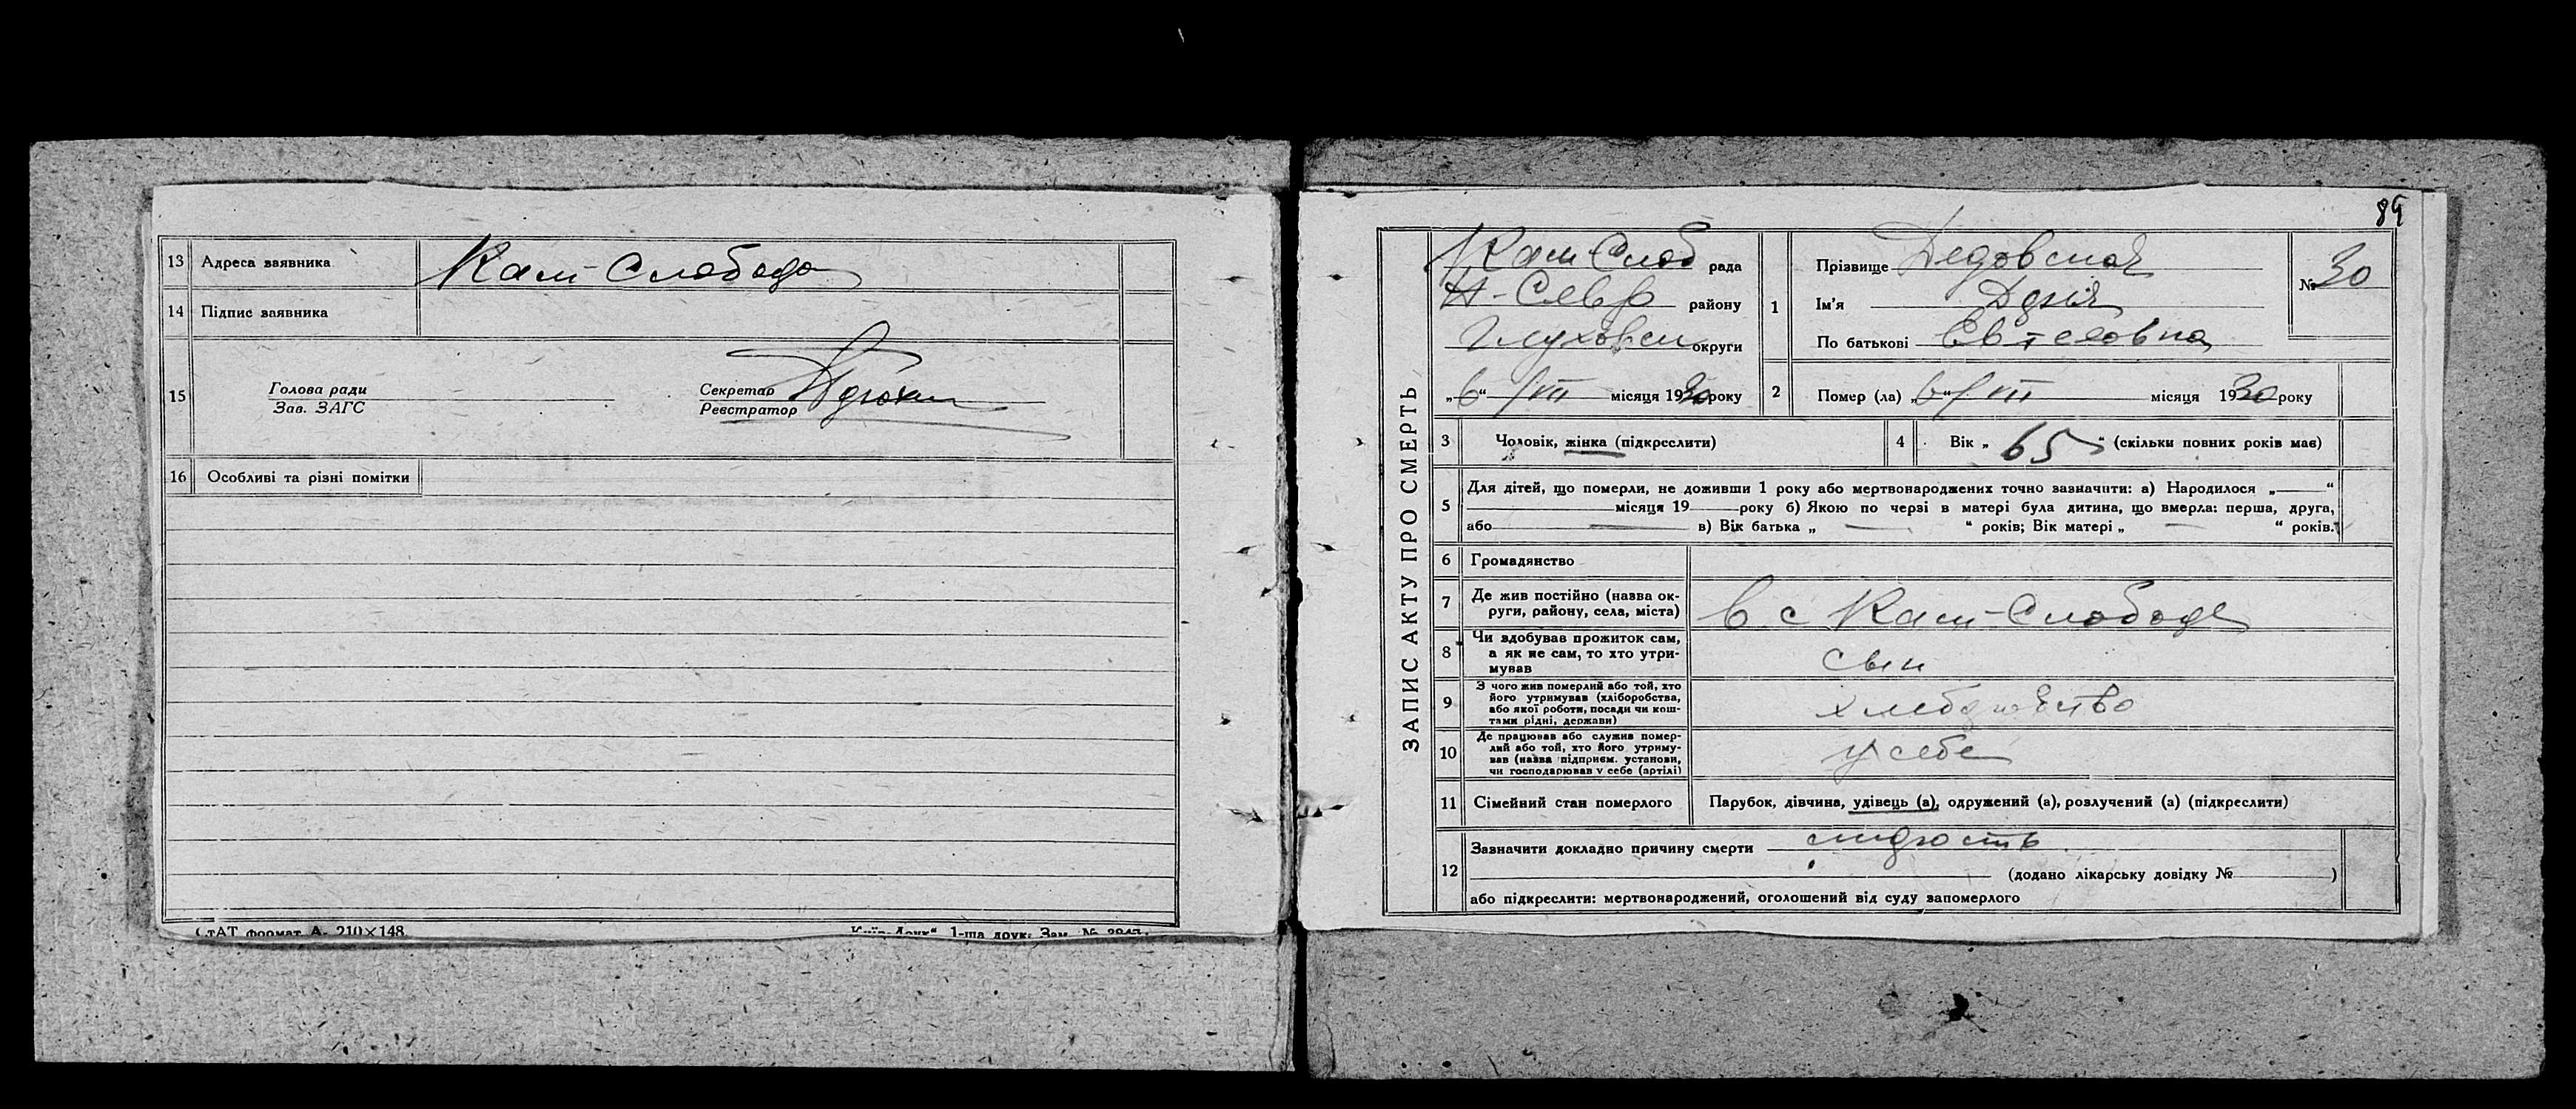 13 Адреса заявника Кам-Слобода
14 Підпис заявника
15 Голова ради Секретар
Зав. ЗАГС Реєстратор
16 Особливі та різні помітки
СтАТ формат А₅ 210×148. „Київ-Друк“, 1-ша друк. Зам. №
89
ЗАПИС АКТУ ПРО СМЕРТЬ
Кам Слоб рада
Н-Севр району
Глуховск округи
„6“ /VII місяця 1930 року
1 Прізвище Дедовская
Ім’я
По батькові
№ 30
2 Помер (ла) „6“ /VII місяця 1930 року
3 Чоловік, жінка (підкреслити)
4 Вік „65“ (скільки повних років мав)
5 Для дітей, що померли, не доживши 1 року або мертвонароджених точно зазначити: а) Народилося „—“
місяця 19 року б) Якою по черзі в матері була дитина, що вмерла: перша, друга,
або — в) Вік батька „ — “ років; Вік матері „ — “ років.
6 Громадянство
7 Де жив постійно (назва ок-
руги, району, села, міста) в с Кам-Слободе
8 Чи здобував прожиток сам,
а як не сам, то хто утри-
мував сын
9 З чого жив померлий або той, хто
його утримував (хліборобства,
або якої роботи, посади чи кош-
тами рідні, держави)
10 Де працював або служив помер-
лий або той, хто його утриму-
вав (назва підприєм. установи,
чи господарював у себе (артілі) у себе
11 Сімейний стан померлого Парубок, дівчина, удівець (а), одружений (а), розлучений (а) (підкреслити)
12 Зазначити докладно причину смерти
(додано лікарську довідку № )
або підкреслити: мертвонароджений, оголошений від суду запомерлого